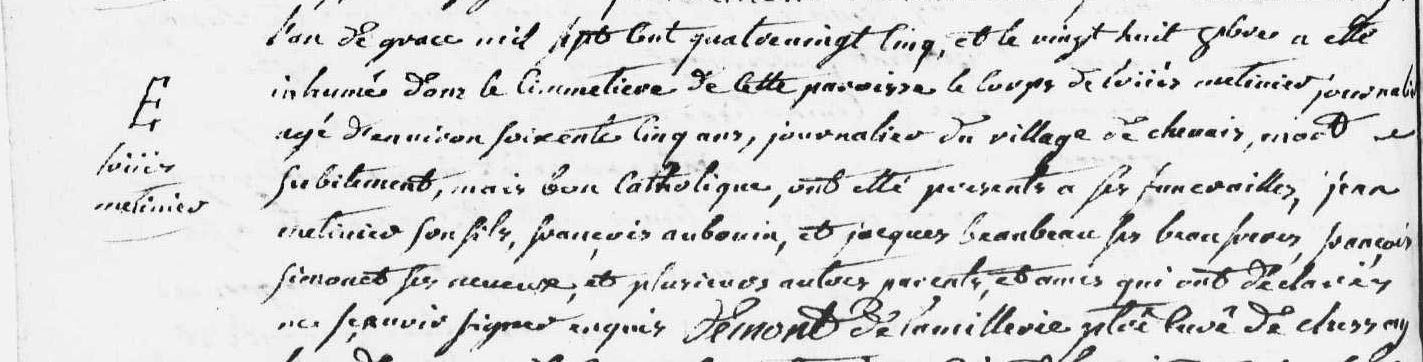 l'an de grace mil sept cent quatrevingt cinq, et le vingt huit 9bre a etté
inhumé dans le cimmetiere de cette paroisse le corps de loüis metinier journalie
E
agé d'environ soixente cinq ans, journalier du village de chevais, mort
loüis
subitement, mais bon catholique, ont etté presents a ses funerailles, jean
metinier
metinier son fils, françois aubouin, et jacques beaubeau ses beaufreres, françois
simonet ses neveux, et plusieurs autres parents, et amis qui ont déclarés
ne sçavoir signer enquis Démont De Lamillerie ptre curé de